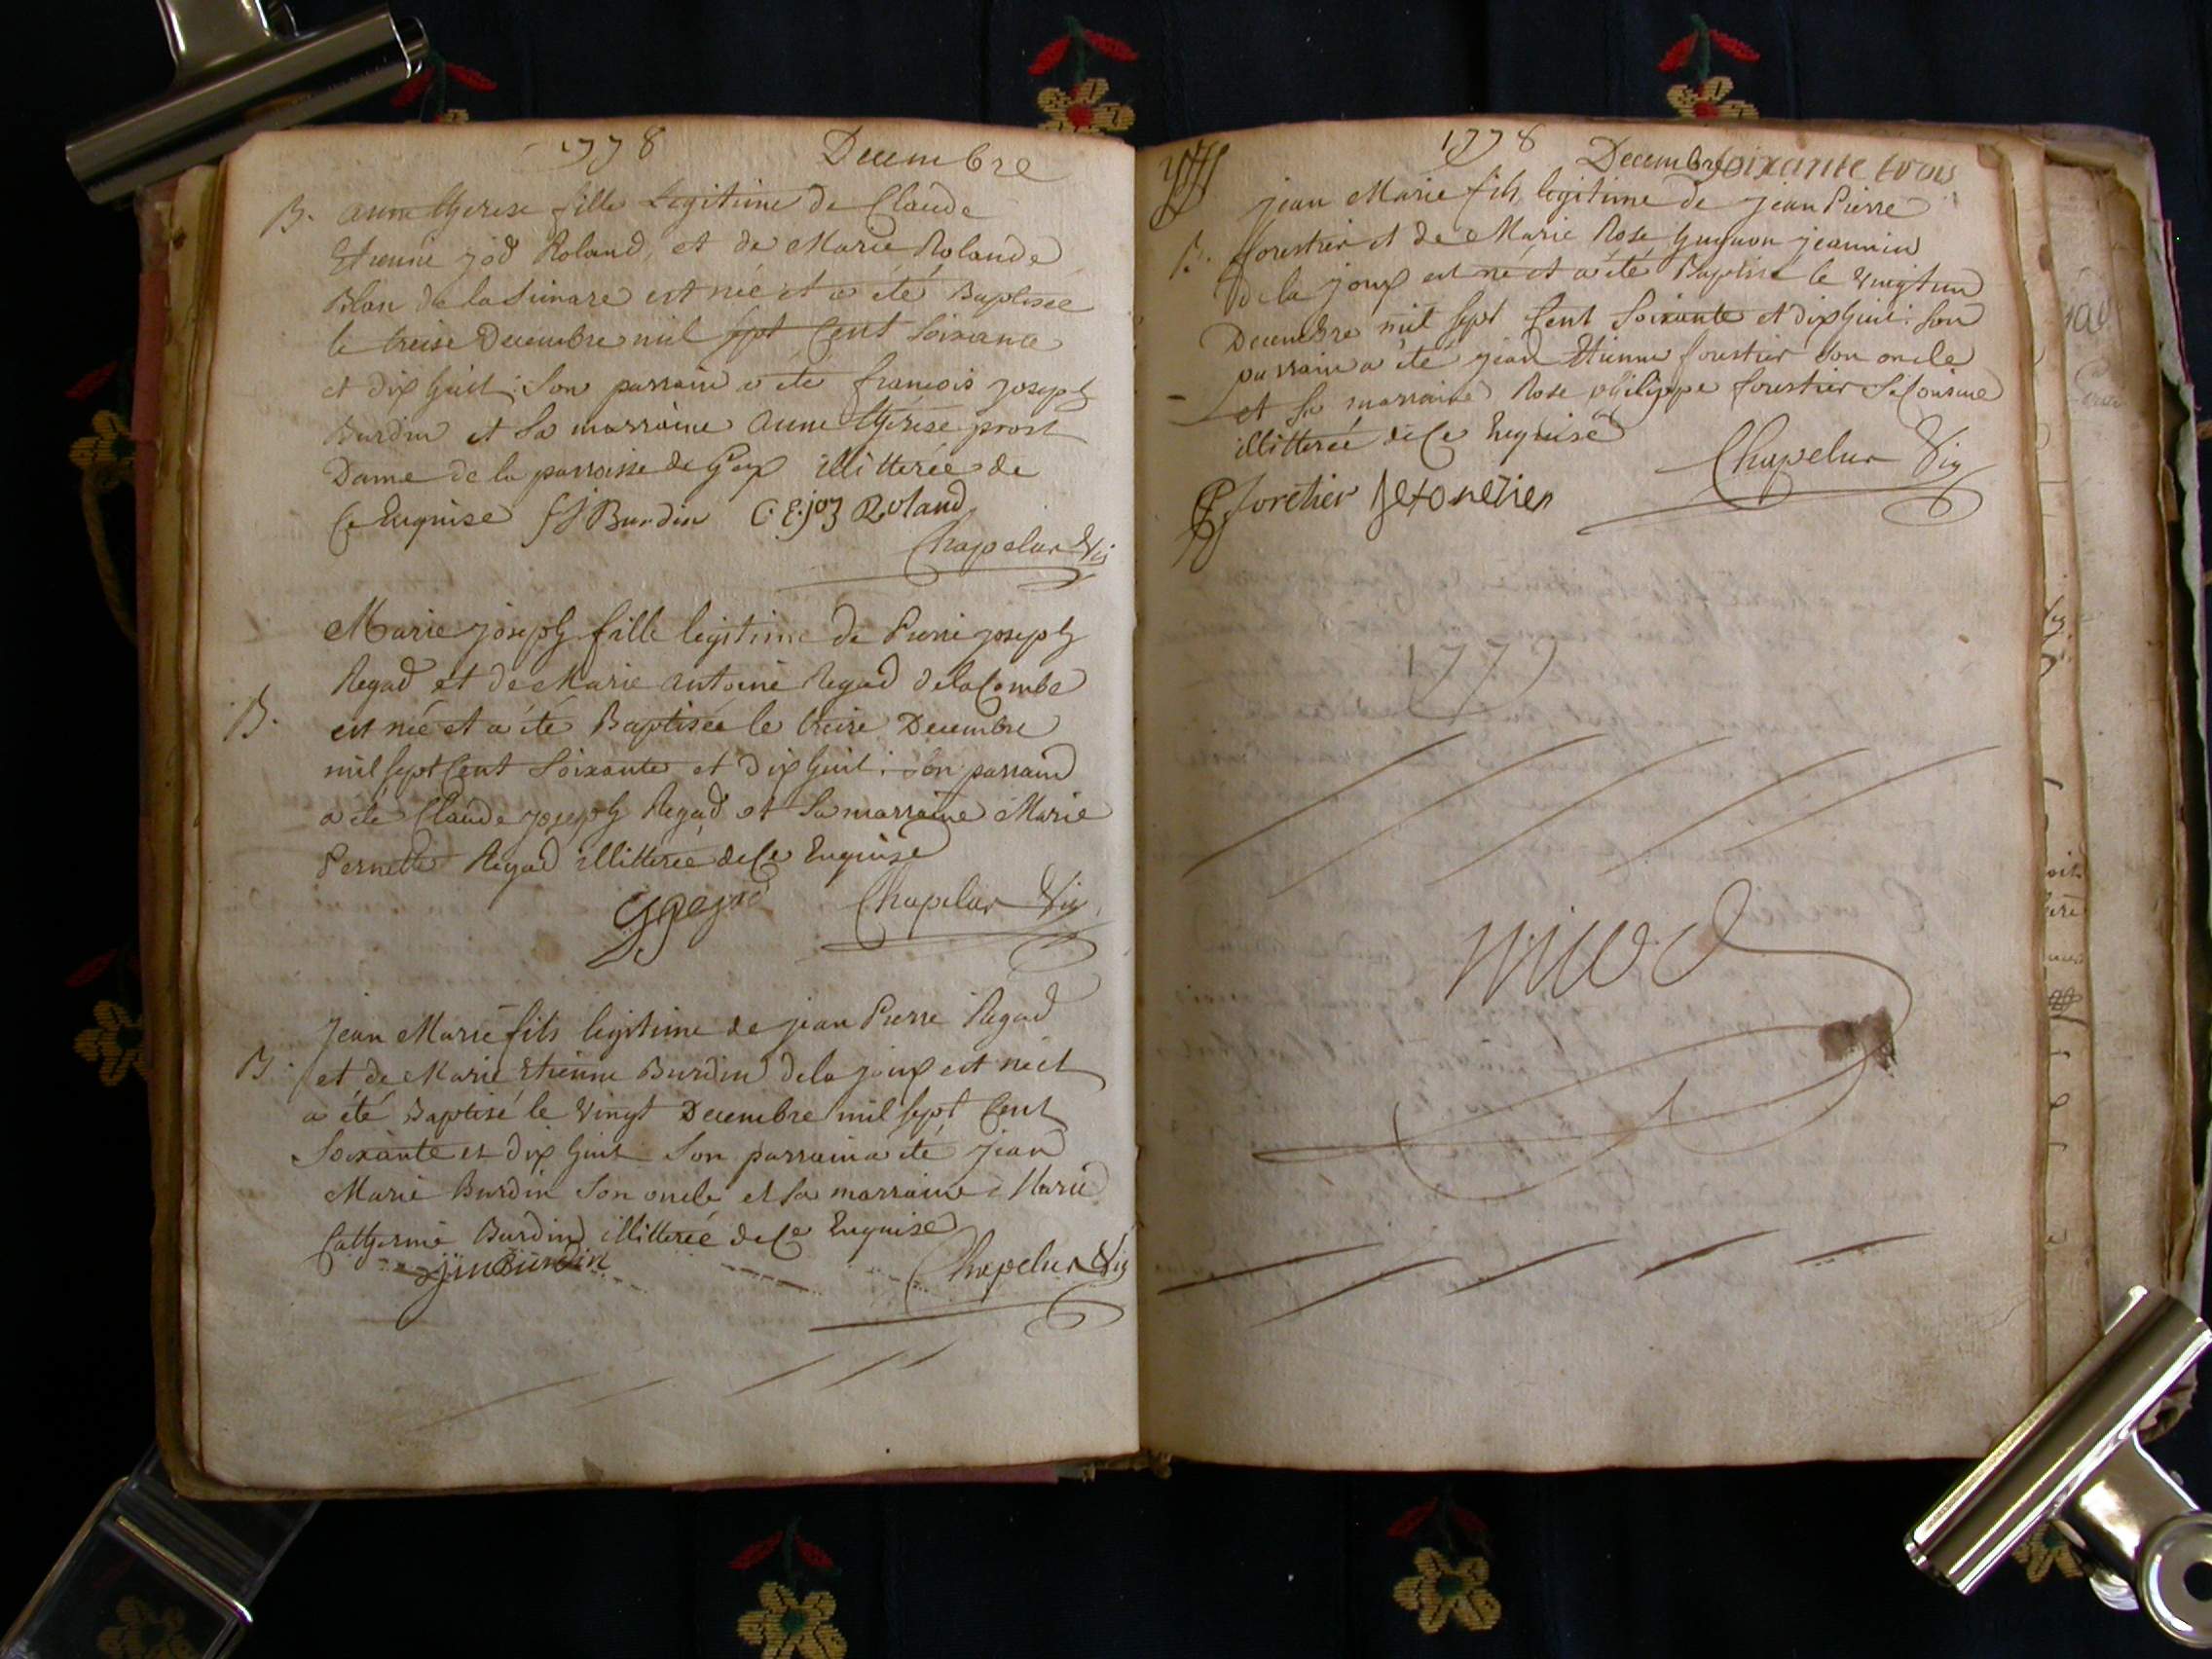 1778 Decembre
B. anne therese fille Legitime de Claude
Etienne joz Roland, et de Marie Rolande
Blan de la Simare est née et a été Baptisée
le treise Decembre mil sept Cent Soixante
et dix huit : Son parrain a été francois joseph
Burdin et Sa marraine anne therese prost
Dame de la parroisse de Gex illitterée de
Ce Enquise f j Burdin C. E. joz Roland
Chapelur Vic
Marie joseph fille legitime de Pierre joseph
Regad et de Marie antoine Regad de la Combe
B. est née et a été Baptisée le treise Decembre
mil sept Cent Soixante et dix huit : Son parrain
a été Claude joseph Regad et Sa marraine Marie
Pernette Regad illitterée de Ce Enquise
Chapelur Vic
Jean Marie fils legitime de jean Pierre Regad
B. et de Marie Etienne Burdin de la joux est né et
a été Baptisé le Vingt Decembre mil sept Cent
Soixante et dix huit Son parrain a été jean
Marie Burdin Son oncle et Sa marraine Marie
Catherine Burdin illitterée de Ce Enquise
jm Burdin Chapelur Vic
1778 Decembre Soixante trois
jean Marie fils legitime de jean Pierre
B. forestier et de Marie Rose jeannin
de la joux est né et a été Baptisé le Vingt un
Decembre mil sept Cent Soixante et dix huit : Son
parrain a été jean Etienne forestier Son oncle
et Sa marraine Rose philippe forestier Sa Cousine
illitterée de Ce Enquise
Chapelur Vic
forétier
1779